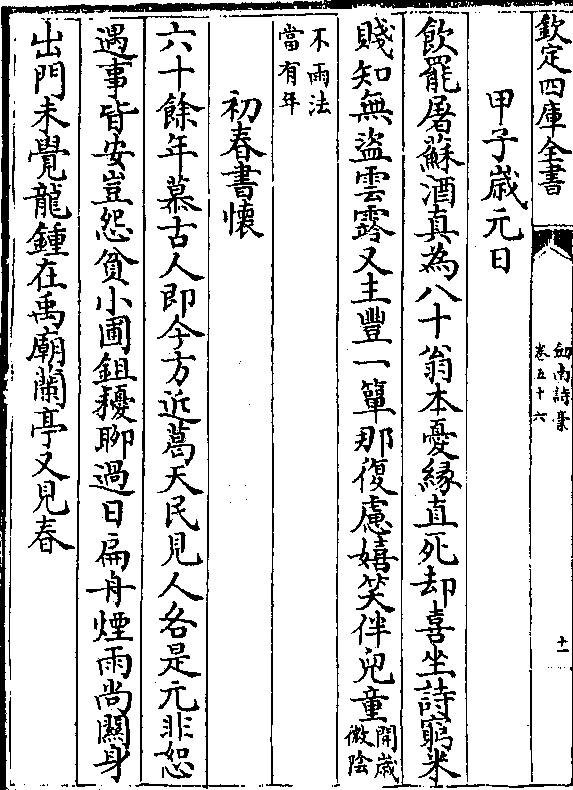 欽定四庫全書
劍南詩藁
卷五十六
十一
甲子歲元日
飲罷屠蘇酒真為八十翁本憂縁直死却喜坐詩窮米
賤知無盜雲露又主豐一簞那復慮嬉笑伴兒童開歲
微陰
不雨法
當有年
初春書懷
六十餘年慕古人即今方近葛天民見人各是元非恕
遇事皆安豈怨貧小圃鉏耰聊過日扁舟煙雨尚闗身
出門未覺龍鍾在禹廟蘭亭又見春